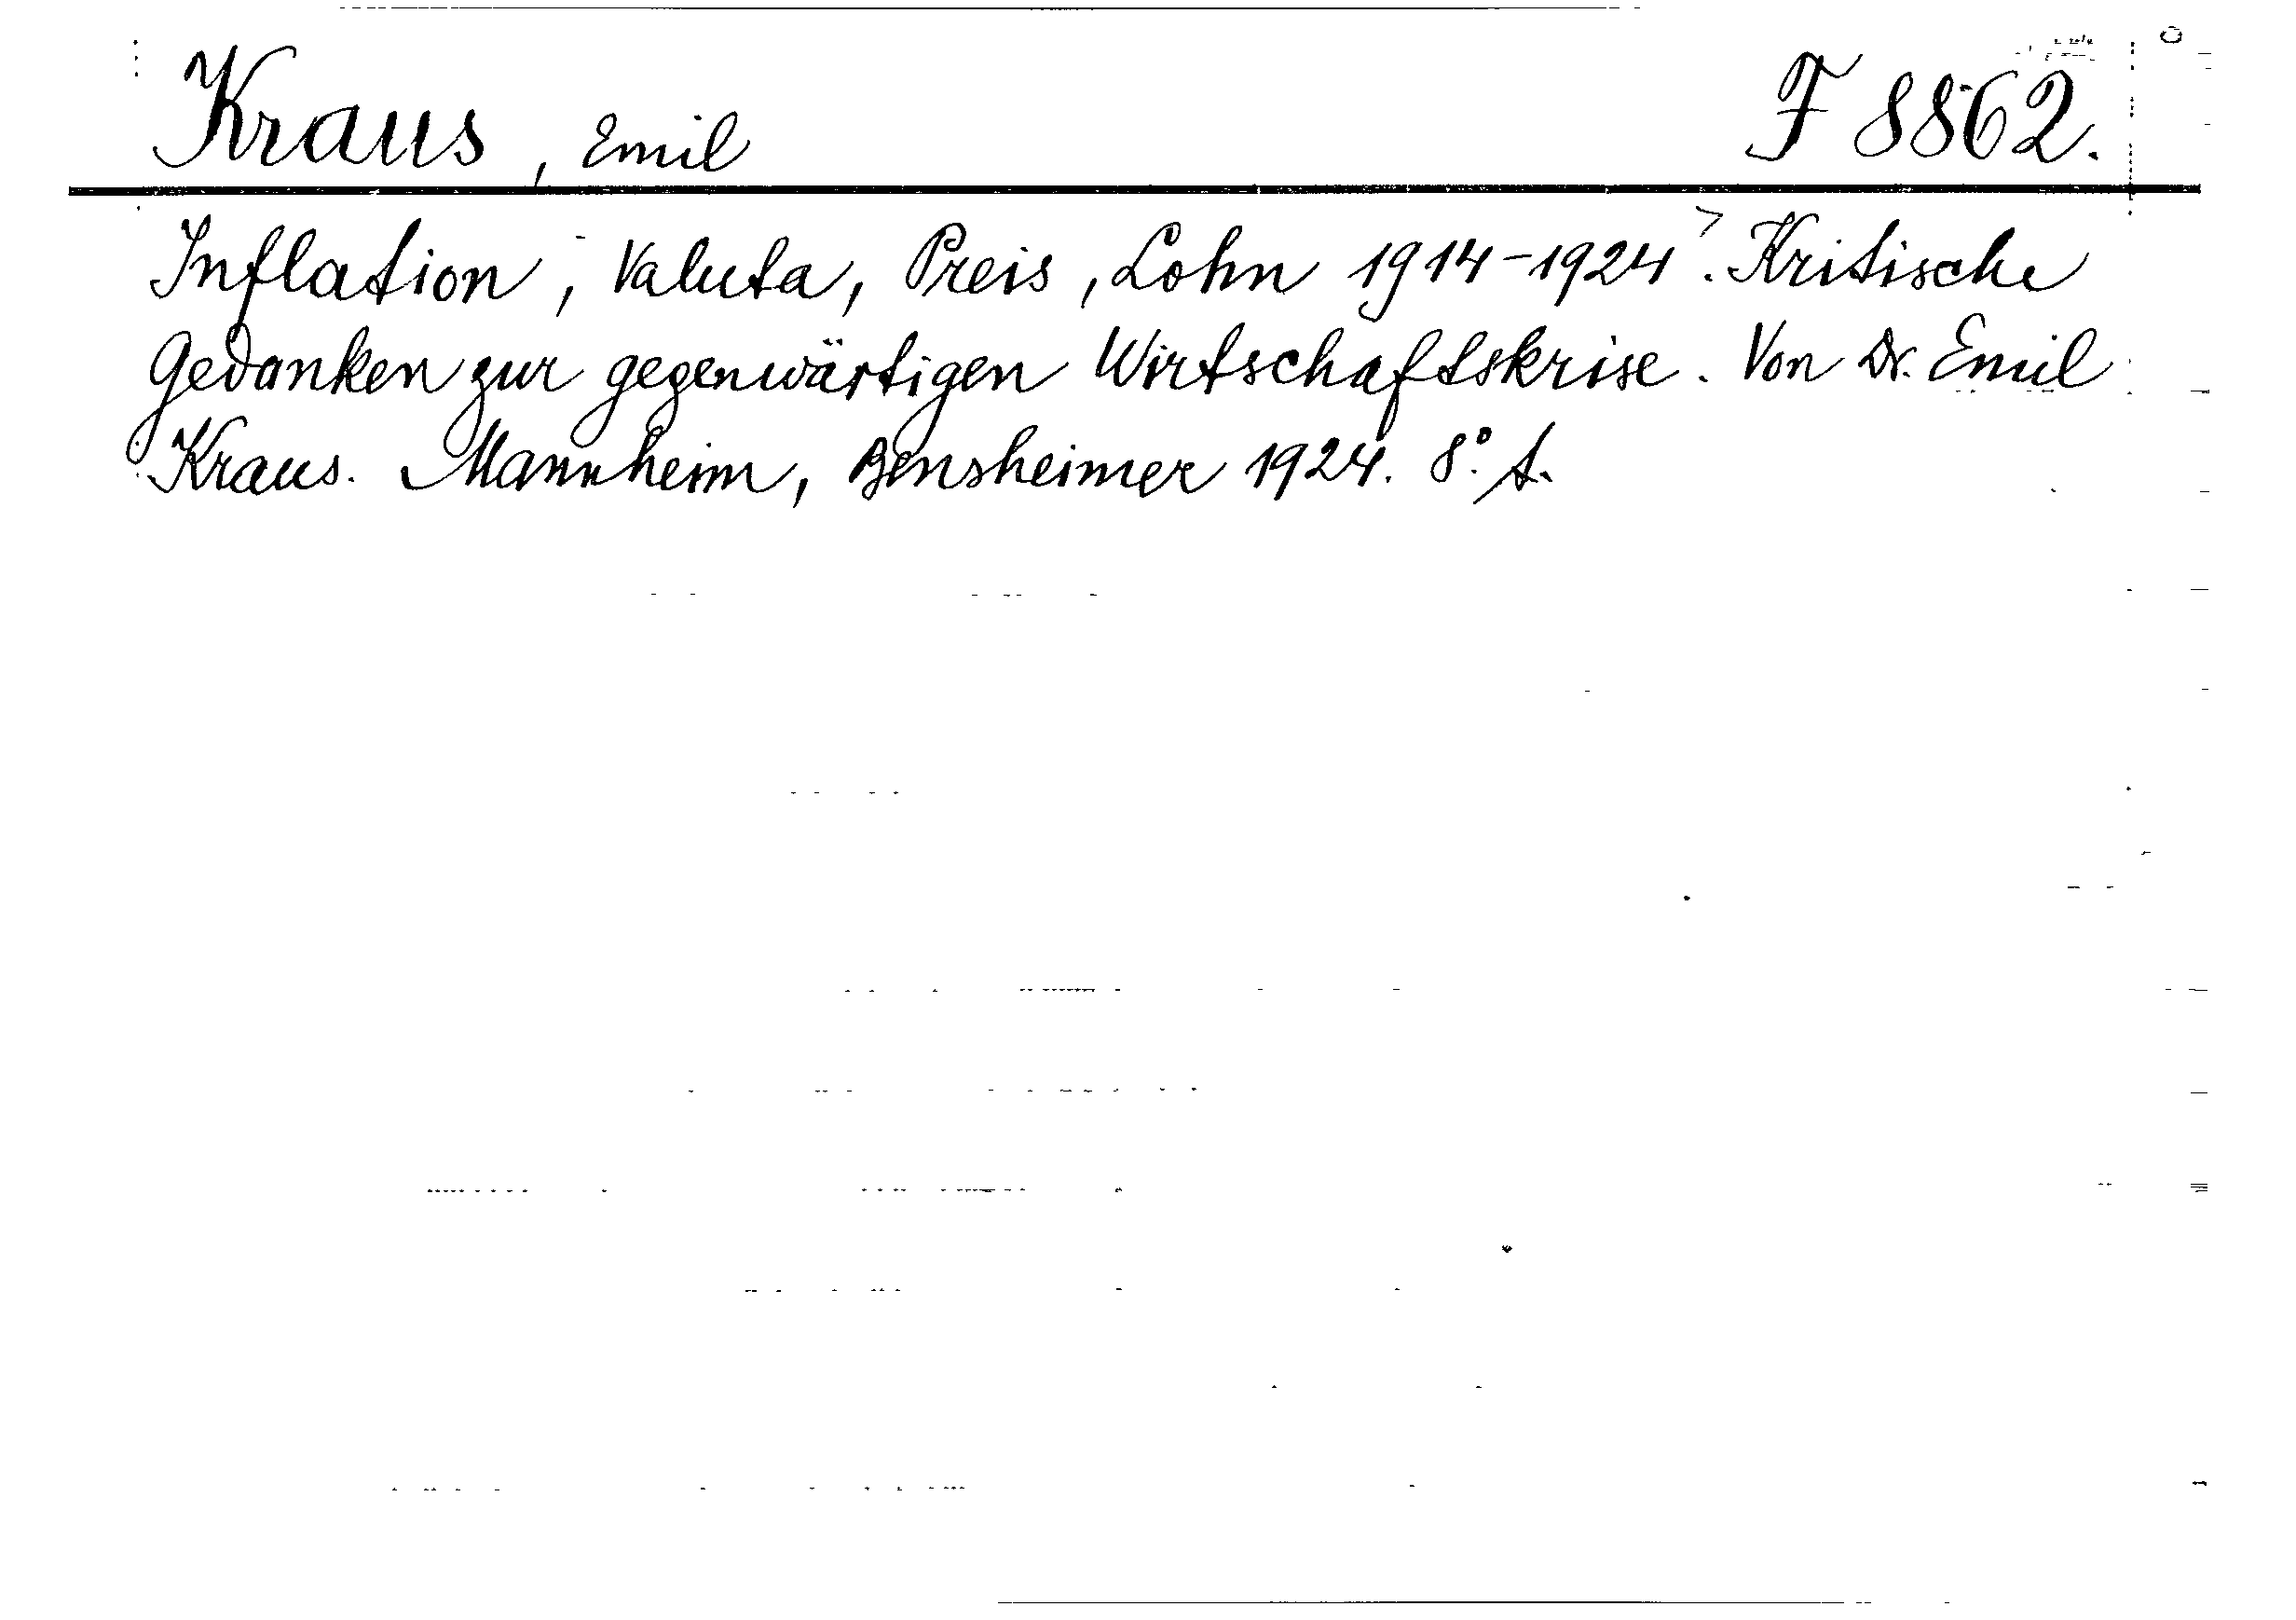 Kraus, Emil F 8862.
Inflation, Valuta, Preis, Lohn 1914-1924. Kritische
Gedanken zur gegenwärtigen Wirtschaftskrise. Von Dr. Emil
Kraus. Mannheim, Bensheimer 1924. 8°.